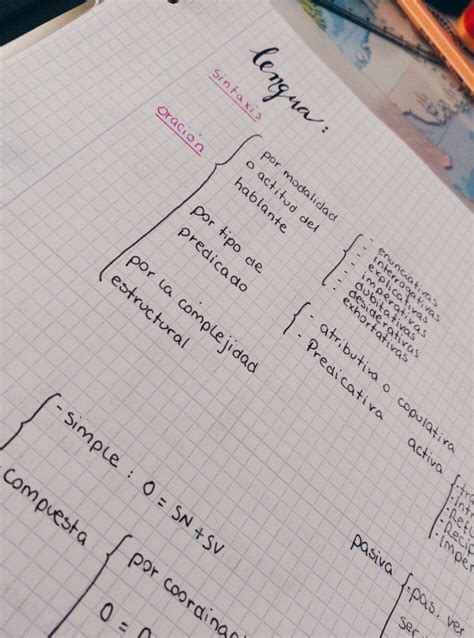 lengua:
sintaxis
oración
por modalidad
o actitud del
hablante
- enunciativas
- interrogativas
- explicativas
- imperativas
- dubitativas
- desiderativas
- exhortativas
por tipo de
predicado
- atributiva o copulativa
- Predicativa
activa
pasiva
- pas. ver
ser
por la complejidad
estructural
- simple : O = SN + SV
compuesta
por coordina
O =